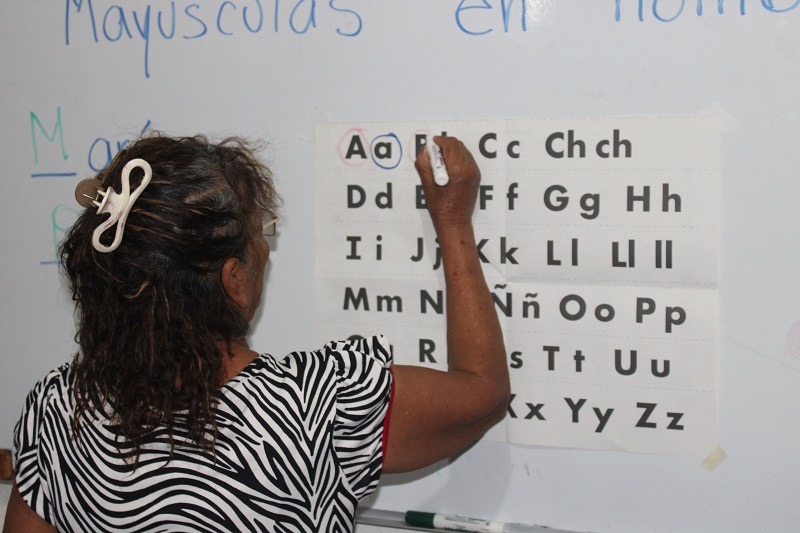 Mayusculas en
M
A a C c Ch ch
D d F f G g H h
I i J j K k L l Ll ll
M m N Ñ ñ O o P p
R s T t U u
X x Y y Z z